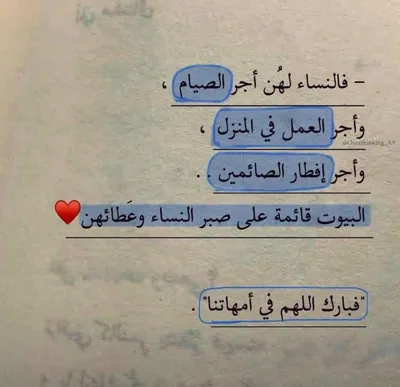 – فالنساء لهُن أجر الصيام ،
وأجر العمل في المنزل ،
@Overthinking_A9
وأجر إفطار الصائمين . .
البيوت قائمة على صبر النساء وعَطائهن ♥️
"فبارك اللهم في أمهاتنا" .